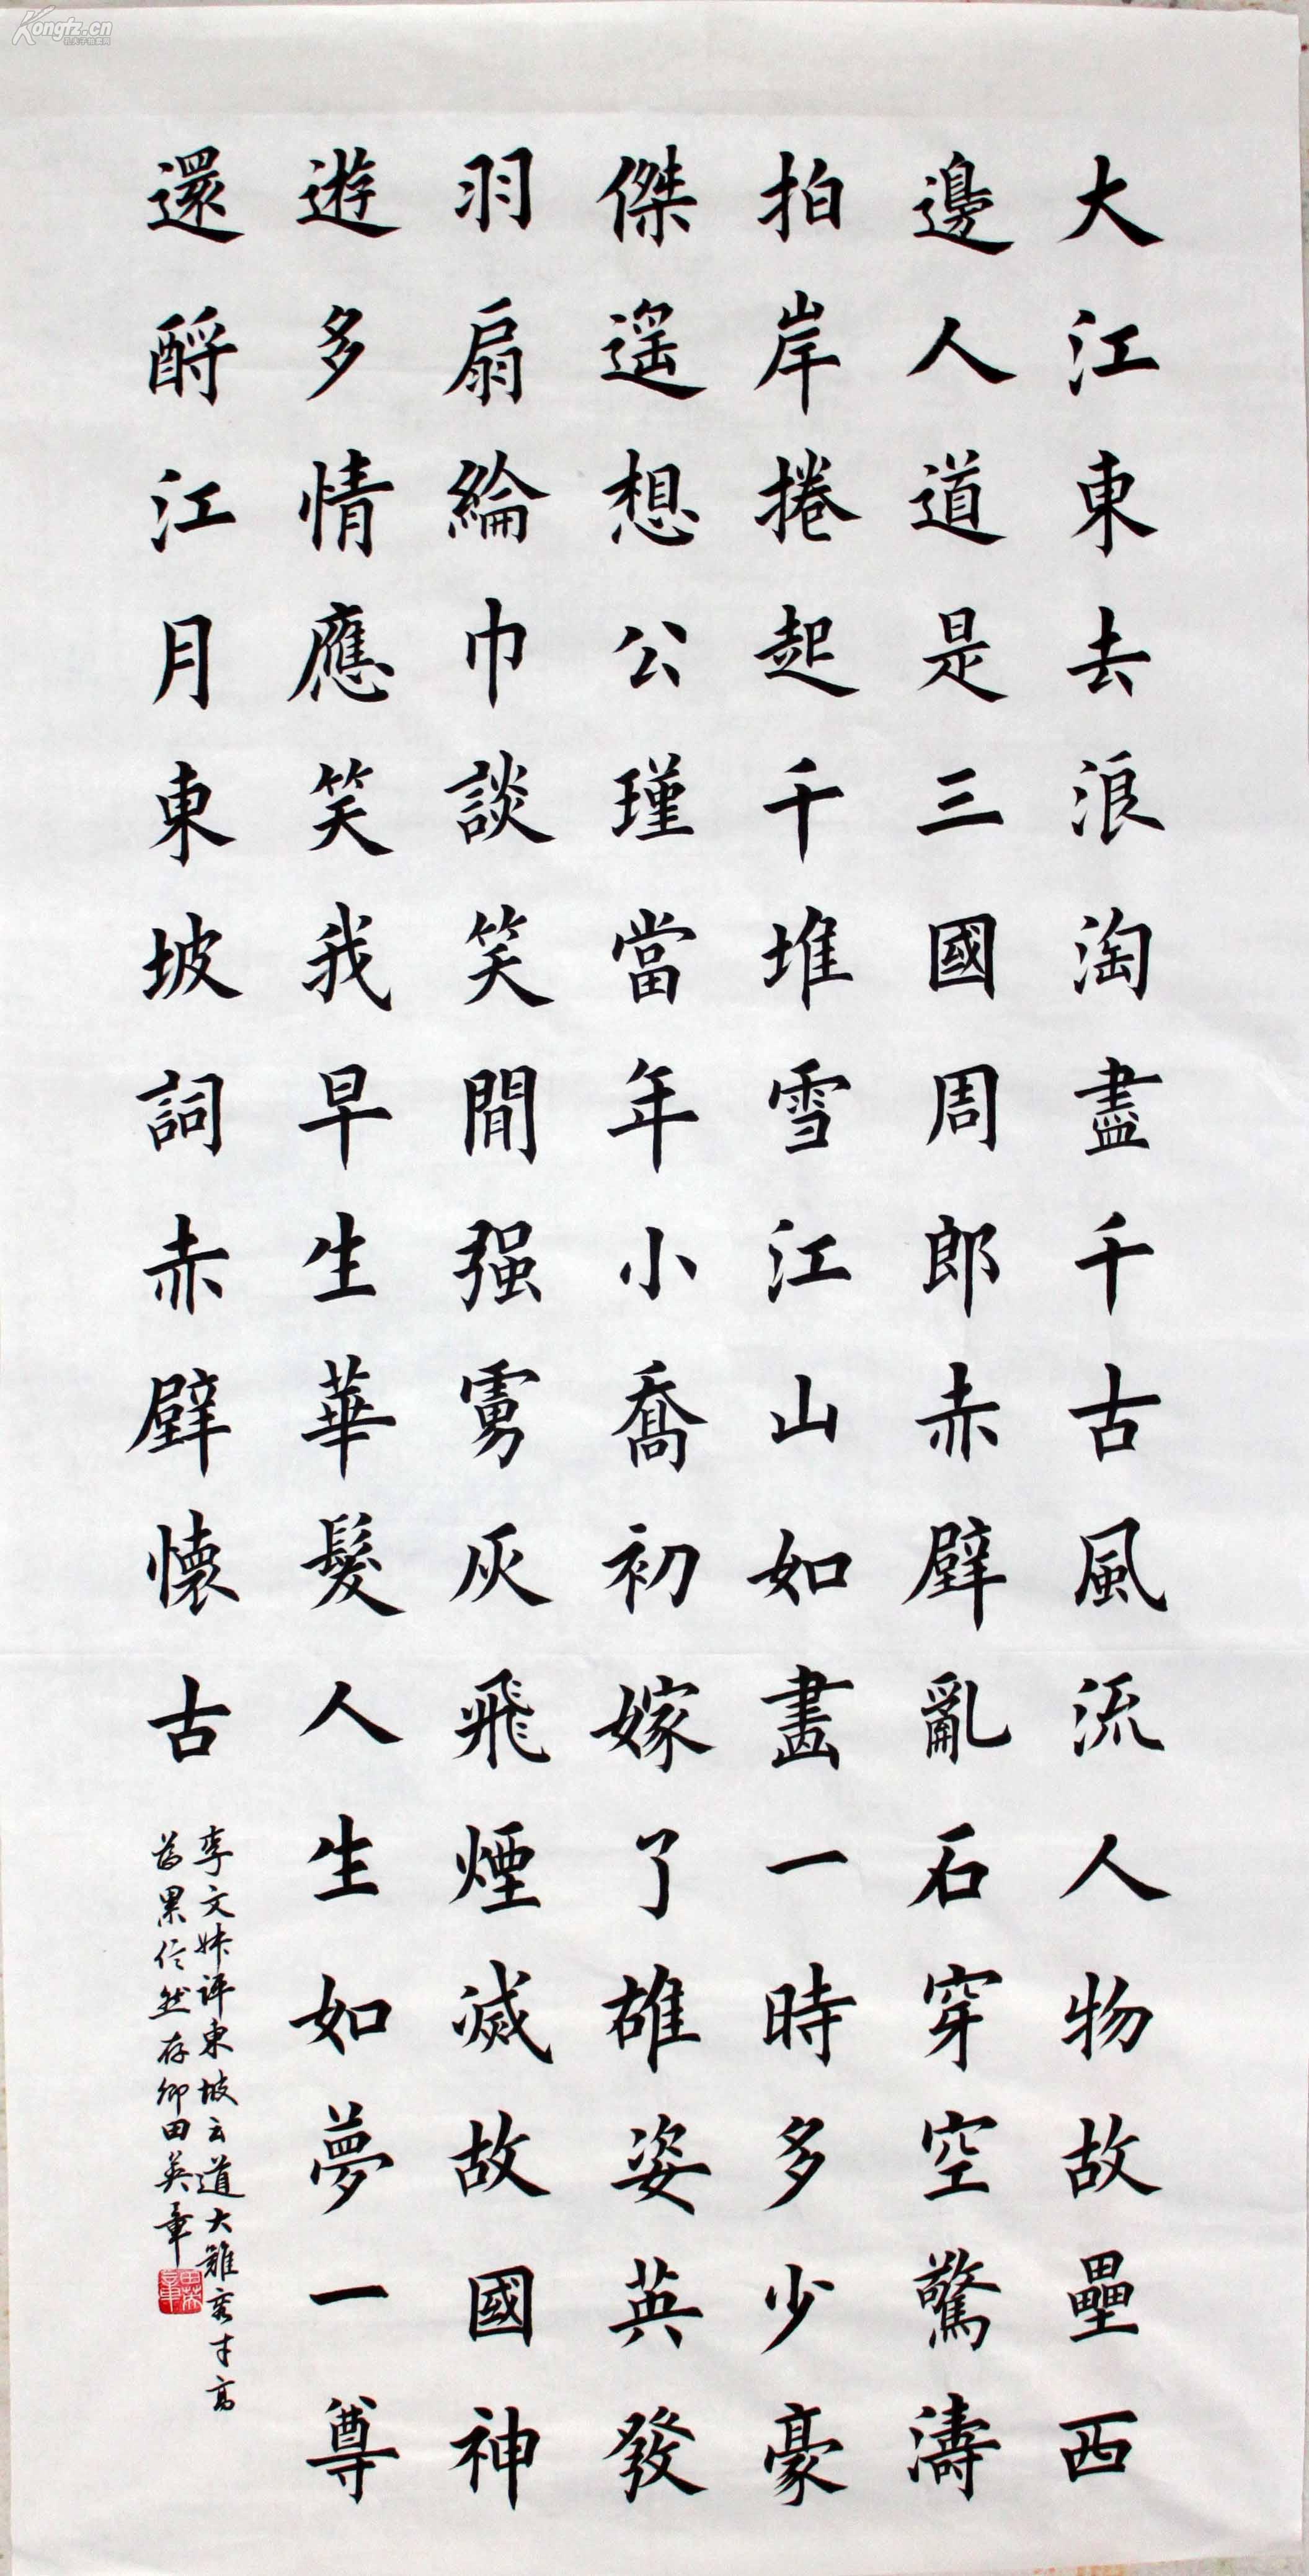 大江東去浪淘盡千古風流人物故壘西
邊人道是三國周郎赤壁亂石穿空驚濤
拍岸捲起千堆雪江山如畫一時多少豪
傑遙想公瑾當年小喬初嫁了雄姿英發
羽扇綸巾談笑間强虜灰飛煙滅故國神
遊多情應笑我早生華髮人生如夢一尊
還酹江月東坡詞赤壁懷古
李文评東坡云道大難容才高
為累信然存卿田英章
Kongfz.cn